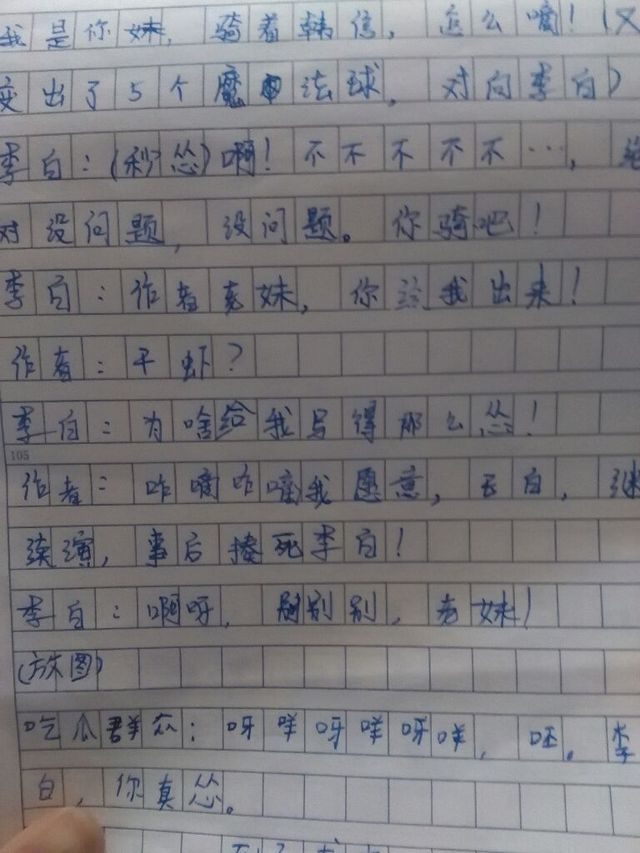 我是你妹，骑着韩信，怎么嘀！（又
变出了5个魔法球，对向李白）
李白：（秒怂）啊！不不不不不…，绝
对没问题，没问题。你骑吧！
李白：作者老妹，你给我出来！
作者：干虾？
李白：为啥给我写得那么怂！
105
作者：咋嘀咋嘀我愿意，云白，继
续演，事后揍死李白！
李白：啊呀，别别别，老妹！
（放图）
吃瓜群众：呀咩呀咩呀咩，呸。李
白，你真怂。